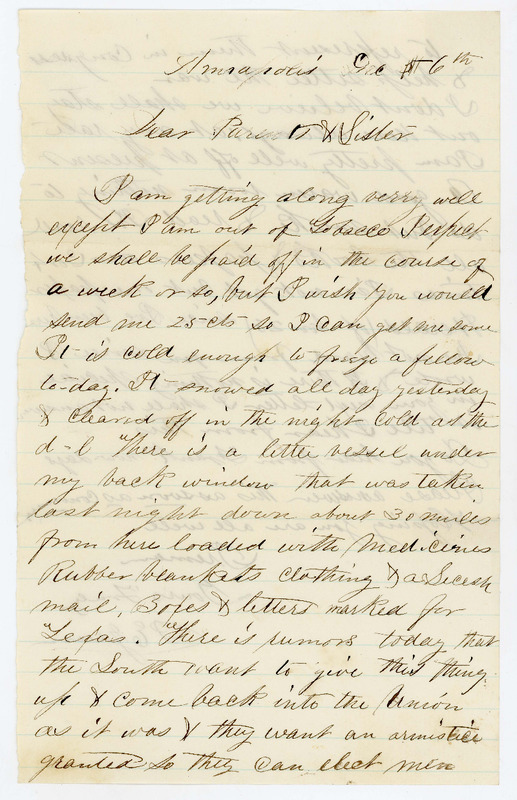 Annapolis Dec 6th
Dear Parents & Sister
I am getting along verry well
except I am out of Tobacco I expect
we shall be paid off in the course of
a week or so, but I wish you would
send me 25 cts so I can get me some
It is cold enough to freeze a fellow
to-day. It snowed all day yesterday
& cleared off in the night Cold as the
d-l There is a little vessel under
my back window that was taken
last night down about 30 miles
from here loaded with Medicines
Rubber blankats clothing & a Secesh
mail, Boxes & letters marked for
Texas. There is rumors today that
the South want to give this thing
up & come back into the Union
as it was & they want an armistice
granted so they can elect men